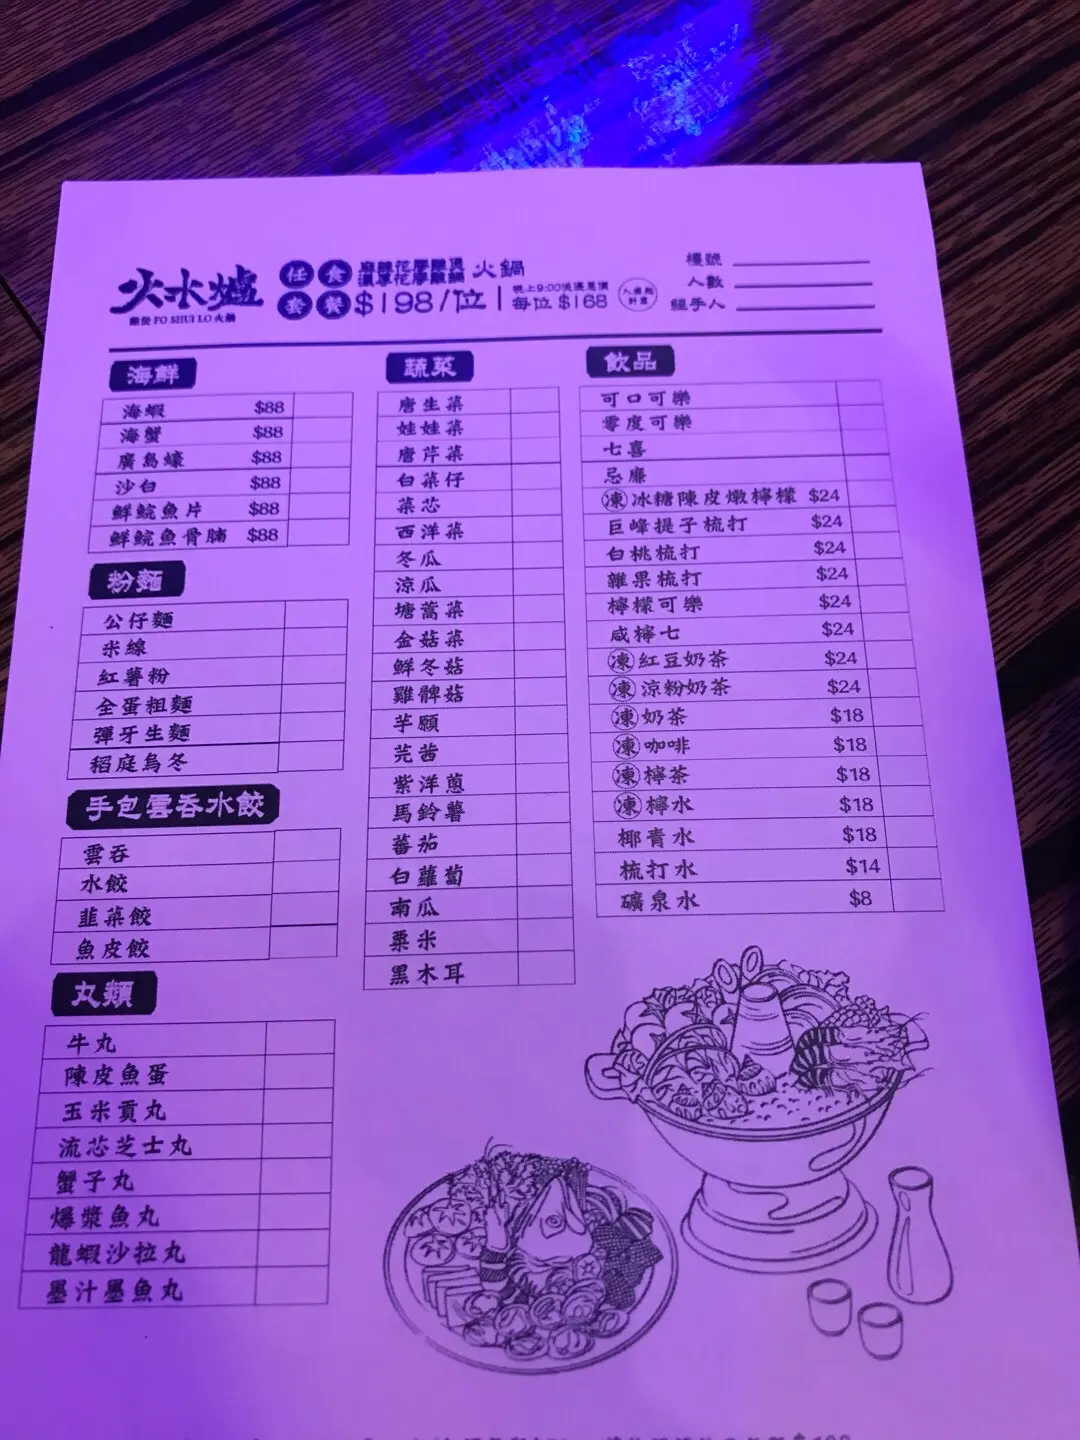 火水爐
FO SHUI LO 火鍋
任食套餐
麻辣花膠雞煲
濃湯花膠雞鍋
火鍋
$198/位
晚上9:00後優惠價
每位 $168
檯號
人數
經手人
海鮮
海蝦 $88
海蟹 $88
廣島蠔 $88
沙白 $88
鮮鯇魚片 $88
鮮鯇魚骨腩 $88
粉麵
公仔麵
米線
紅薯粉
全蛋粗麵
彈牙生麵
稻庭烏冬
手包雲吞水餃
雲吞
水餃
韮菜餃
魚皮餃
丸類
牛丸
陳皮魚蛋
玉米貢丸
流芯芝士丸
蟹子丸
爆漿魚丸
龍蝦沙拉丸
墨汁墨魚丸
蔬菜
唐生菜
娃娃菜
唐芹菜
白菜仔
菜芯
西洋菜
冬瓜
涼瓜
塘蒿菜
金菇菜
鮮冬菇
雞髀菇
芋願
芫茜
紫洋蔥
馬鈴薯
蕃茄
白蘿蔔
南瓜
粟米
黑木耳
飲品
可口可樂
零度可樂
七喜
忌廉
凍冰糖陳皮燉檸檬 $24
巨峰提子梳打 $24
白桃梳打 $24
雜果梳打 $24
檸檬可樂 $24
咸檸七 $24
凍紅豆奶茶 $24
凍涼粉奶茶 $24
凍奶茶 $18
凍咖啡 $18
凍檸茶 $18
凍檸水 $18
椰青水 $18
梳打水 $14
礦泉水 $8